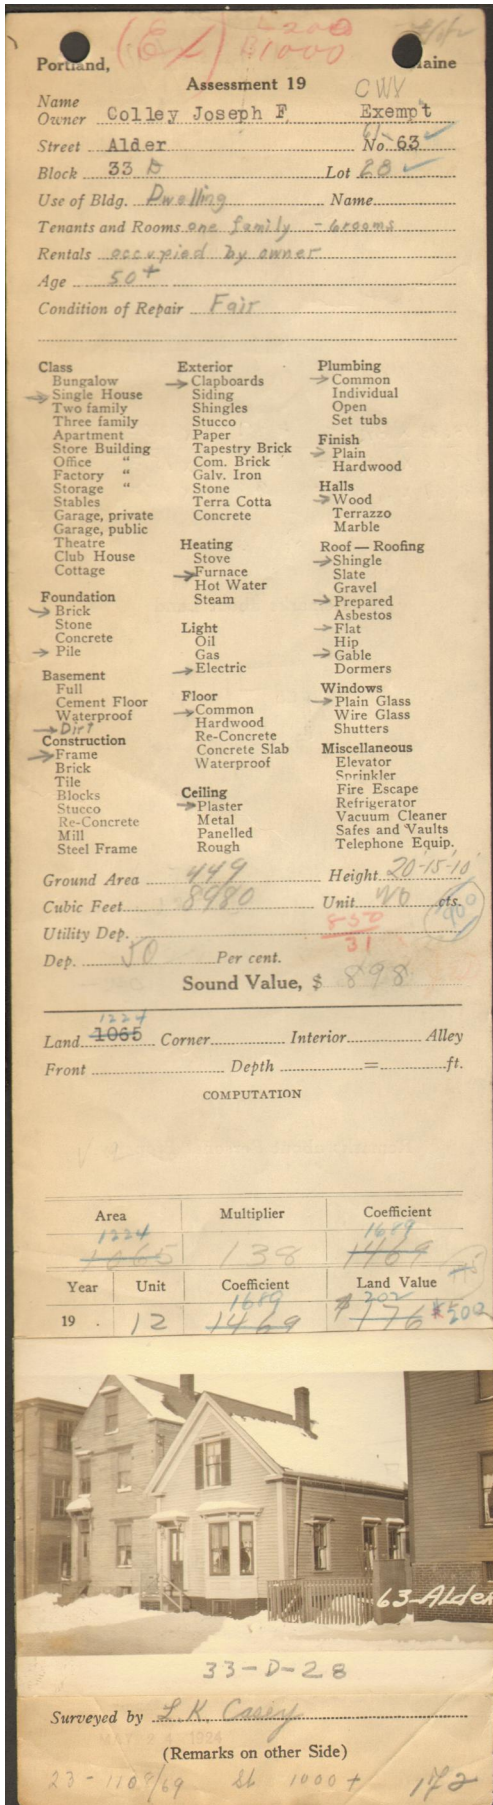 (Ex) L200
B1000
Portland, Maine
Assessment 19
CWV
Name
Owner Colley Joseph F Exempt
61-
Street Alder No. 63 ✓
Block 33 D Lot 28 ✓
Use of Bldg. Dwelling Name
Tenants and Rooms one family - 6 rooms
Rentals occupied by owner
Age 50+
Condition of Repair Fair
Class
Bungalow
→ Single House
Two family
Three family
Apartment
Store Building
Office "
Factory "
Storage "
Stables
Garage, private
Garage, public
Theatre
Club House
Cottage
Foundation
→ Brick
Stone
Concrete
→ Pile
Basement
Full
Cement Floor
Waterproof
→ Dirt
Construction
→ Frame
Brick
Tile
Blocks
Stucco
Re-Concrete
Mill
Steel Frame
Exterior
→ Clapboards
Siding
Shingles
Stucco
Paper
Tapestry Brick
Com. Brick
Galv. Iron
Stone
Terra Cotta
Concrete
Heating
Stove
→ Furnace
Hot Water
Steam
Light
Oil
Gas
→ Electric
Floor
→ Common
Hardwood
Re-Concrete
Concrete Slab
Waterproof
Ceiling
→ Plaster
Metal
Panelled
Rough
Plumbing
→ Common
Individual
Open
Set tubs
Finish
→ Plain
Hardwood
Halls
→ Wood
Terrazzo
Marble
Roof — Roofing
→ Shingle
Slate
Gravel
→ Prepared
Asbestos
→ Flat
Hip
→ Gable
Dormers
Windows
→ Plain Glass
Wire Glass
Shutters
Miscellaneous
Elevator
Sprinkler
Fire Escape
Refrigerator
Vacuum Cleaner
Safes and Vaults
Telephone Equip.
Ground Area 449 Height 20-15-10
Cubic Feet 8980 Unit 20 cts.
900
Utility Dep. 850
31
Dep. 50 Per cent.
Sound Value, $ 898
1224
Land 1065 Corner Interior Alley
Front Depth = ft.
COMPUTATION
Area Multiplier Coefficient
1224 1689
1065 138 1469
Year Unit Coefficient Land Value
1689 202
19 . 12 1469 $ 176 $200
63-Alder
33-D-28
Surveyed by L. K. Casey
1924
(Remarks on other Side)
23-1108/69 1000+ 172